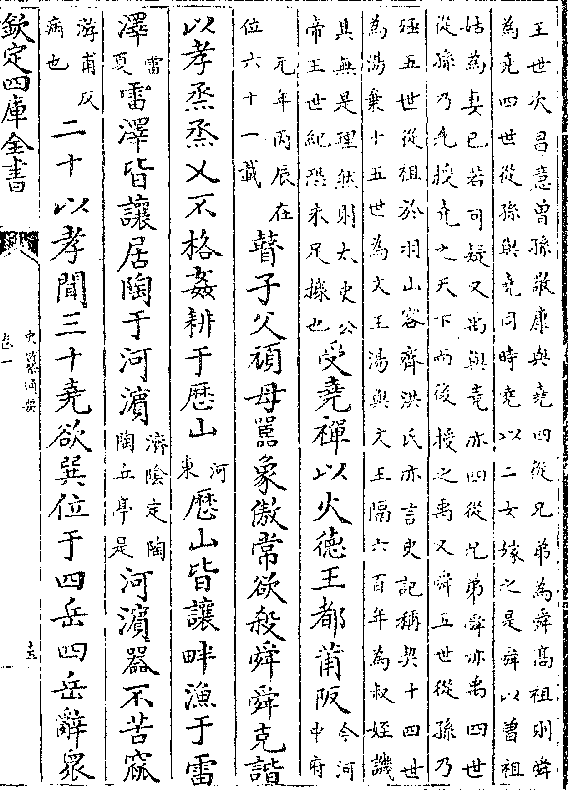 王世次昌意曾孫敬康與堯四從兄弟為舜高祖則舜
為堯四世從孫與堯同時堯以二女嫁之是舜以曾祖
姑為妻已若可疑又禹與堯亦四從兄弟舜亦禹四世
從孫乃先授堯之天下而後授之禹又舜五世從孫乃
殛五世從祖於羽山容齊洪氏亦言史記稱契十四世
為湯棄十五世為文王湯與文王隔六百年為叔姪譏
其無是理然則太史公帝王世紀恐未足據也受堯禪以火德王都莆阪今河中府
元年丙辰在位六十一載瞽子父頑母嚚象傲常欲殺舜舜克諧
以孝烝烝乂不格姦耕于歴山河東歴山皆讓畔漁于雷
澤雷夏雷澤皆讓居陶于河濱濟陰定陶陶丘亭是河濱器不苦窳
游甫反病也二十以孝聞三十堯欲巽位于四岳四岳辭衆
欽定四庫全書
史纂通要
卷一